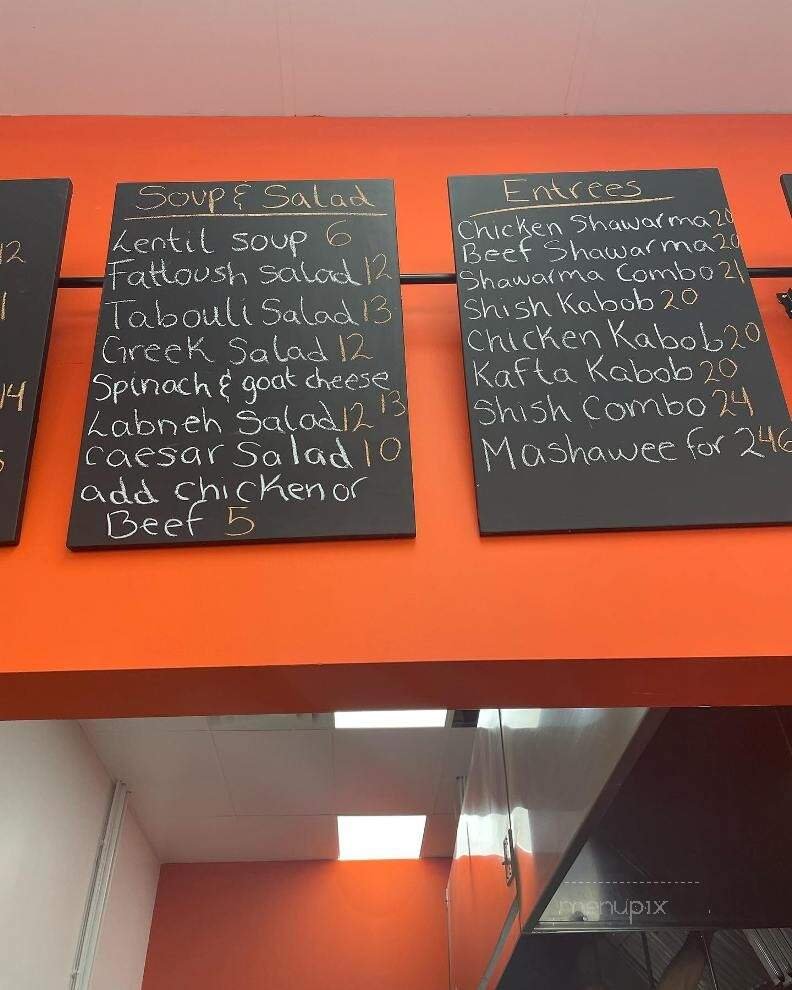 12
14
Soup & Salad
Lentil soup 6
Fattoush salad 12
Tabouli Salad 13
Greek Salad 12
Spinach & goat cheese 13
Labneh Salad 12
caesar Salad 10
add chicken or
Beef 5
Entrees
Chicken Shawarma 20
Beef Shawarma 20
Shawarma Combo 21
Shish Kabob 20
Chicken Kabob 20
Kafta Kabob 20
Shish Combo 24
Mashawee for 2 46
menupix